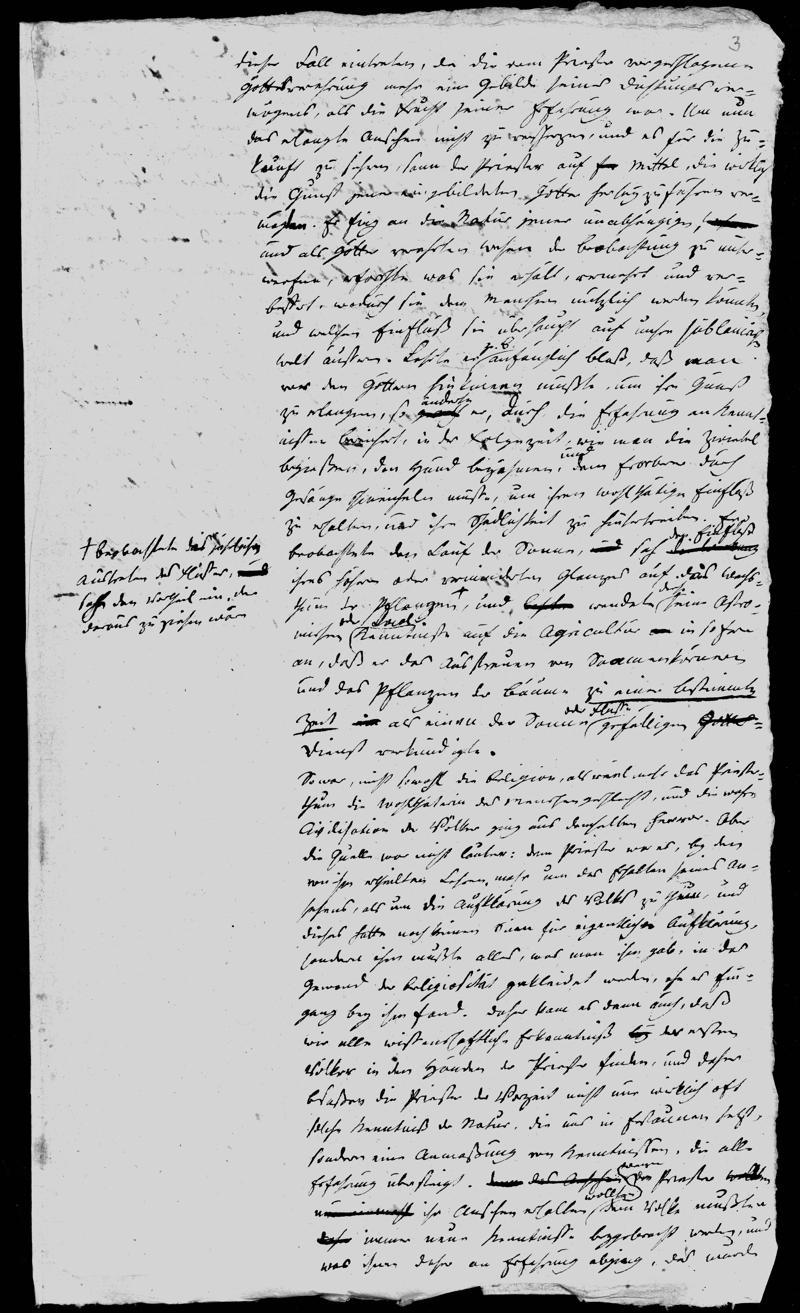 3
dieser Fall eintreten, da die vom Priester vorgeschlagene
Gottesverehrung mehr ein Gebilde seines Dichtungsver-
mögens, als die Frucht seiner Erfahrung war. Um nun
das erlangte Ansehen nicht zu verscherzen, und es für die Zu-
kunft zu sichern, sann der Priester auf Mittel, die wirklich
die Gunst jener eingebildeten Götter herbeyzuführen ver-
mögen. Er fing an die Natur jener unabhängigen,
und als Götter verehrten Wesen der Beobachtung zu unter-
werfen, erforschte was sie erhält, vermehrt und ver-
bessert, wodurch sie dem Menschen nützlich werden könnten,
und welchen Einfluß sie überhaupt auf unsre sublunarische
Welt äussern. Lehrte er z. B. anfänglich bloß, daß man
vor den Göttern hinknieen mußte, um ihre Gunst
zu erlangen, so änderte er, durch die Erfahrung an Kennt-
nissen bereichert, in der Folgezeit, wie man die Zwiebel
begießen, den Hund bezähmen, und dem Eroberer durch
Gesänge schmeicheln müsse, um ihren wohlthätigen Einfluß
zu erhalten, und ihre Schädlichkeit zu hintertreiben. Er
beobachtete den Lauf der Sonne, sah den Einfluß
ihres höhern oder verminderten Glanzes auf das Wachs-
thum der Pflanzen †, und wendete seine Astro-
nomischen oder Kenntnisse auf die Agricultur in sofern
an, daß er das Ausstreuen von Saamenkörnern
und das Pflanzen der Bäume zu einer bestimmten
Zeit als einen der Sonne oder Flusse gefälligen
Dienst verkündigte.
† beobachtete das jährliche
Austreten der Flüsse,
sah den Vortheil ein, der
daraus zu ziehen wäre
So war, nicht sowohl die Religion, als vielmehr das Priester-
thum die Wohlthäterin des Menschengeschlechts, und die wahre
Civilisation der Völker ging aus demselben hervor. Aber
die Quelle war nicht lauter: dem Priester war es, bey den
von ihm ertheilten Lehren, mehr um das Erhalten seines An-
sehens, als um die Aufklärung des Volks zu thun, und
dieses hatte noch keinen Sinn für eigentliche Aufklärung,
sondern ihm mußte alles, was man ihm gab, in das
Gewand der Religiosität gekleidet werden, ehe es Ein-
gang bey ihm fand. Daher kam es denn auch, daß
wir alle wissenschaftliche Erkenntniß der ersten
Völker in den Händen der Priester finden, und daher
besaßen die Priester der Vorzeit nicht nur wirklich oft
solche Kenntniß der Natur, die uns in Erstaunen setzt,
sondern eine Anmaßung von Kenntnissen, die alle
Erfahrung übersteigt. Wenn die Priester
ihr Ansehen erhalten wollten, dem Volke mußten
immer neue Kenntnisse beygebracht werden, und
was ihnen daher an Erfahrung abging, das wurde